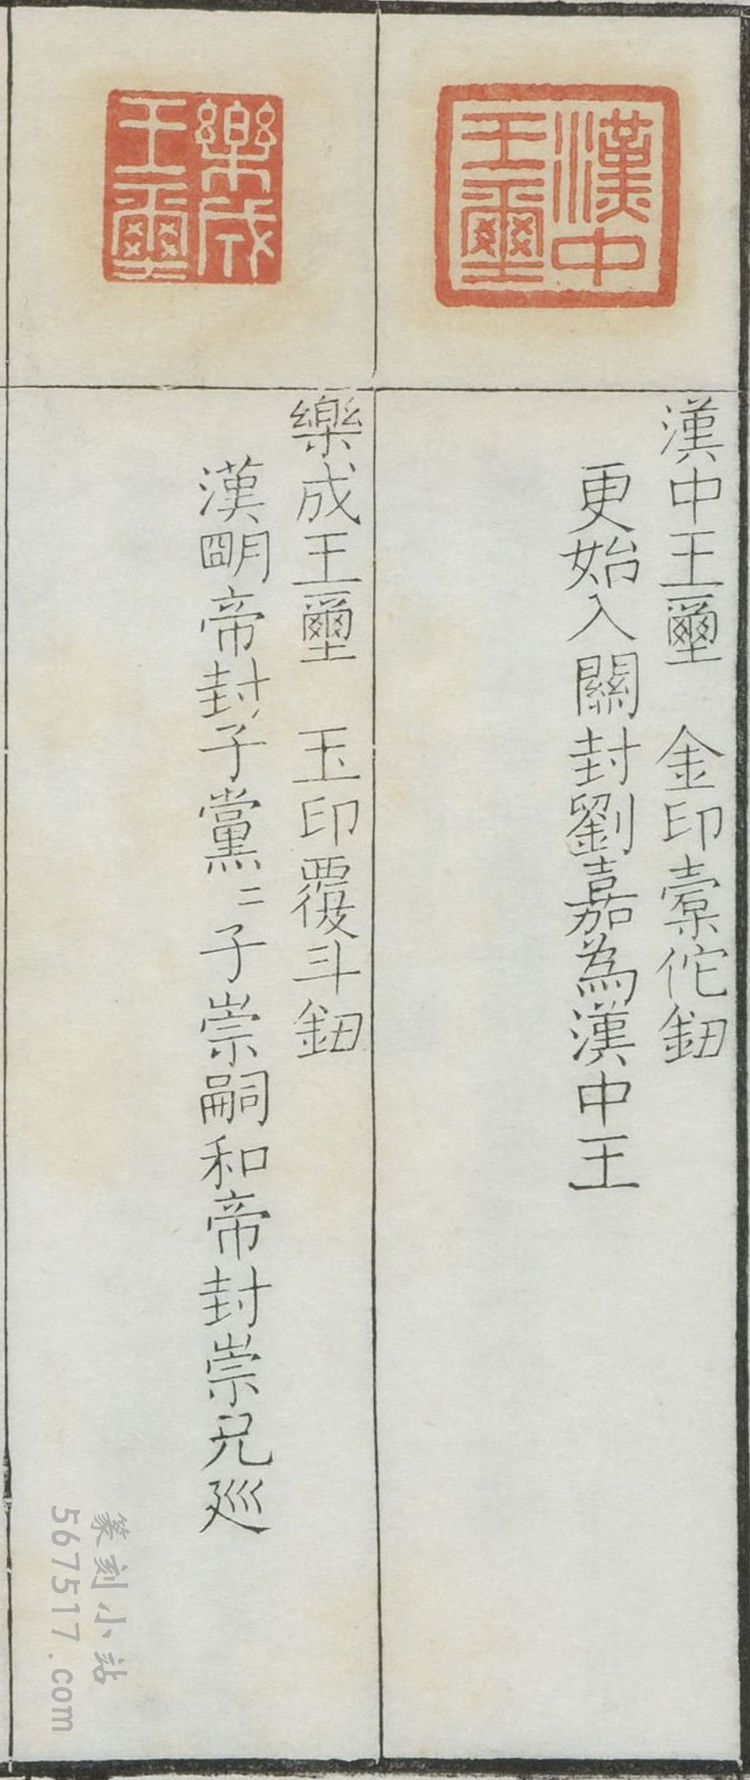 漢中
王璽
漢中王璽　金印橐佗鈕
更始入關封劉嘉為漢中王
樂成
王璽
樂成王璽　玉印覆斗鈕
漢朙帝封子黨〻子崇嗣和帝封崇兄巡
篆刻小站
567517.com